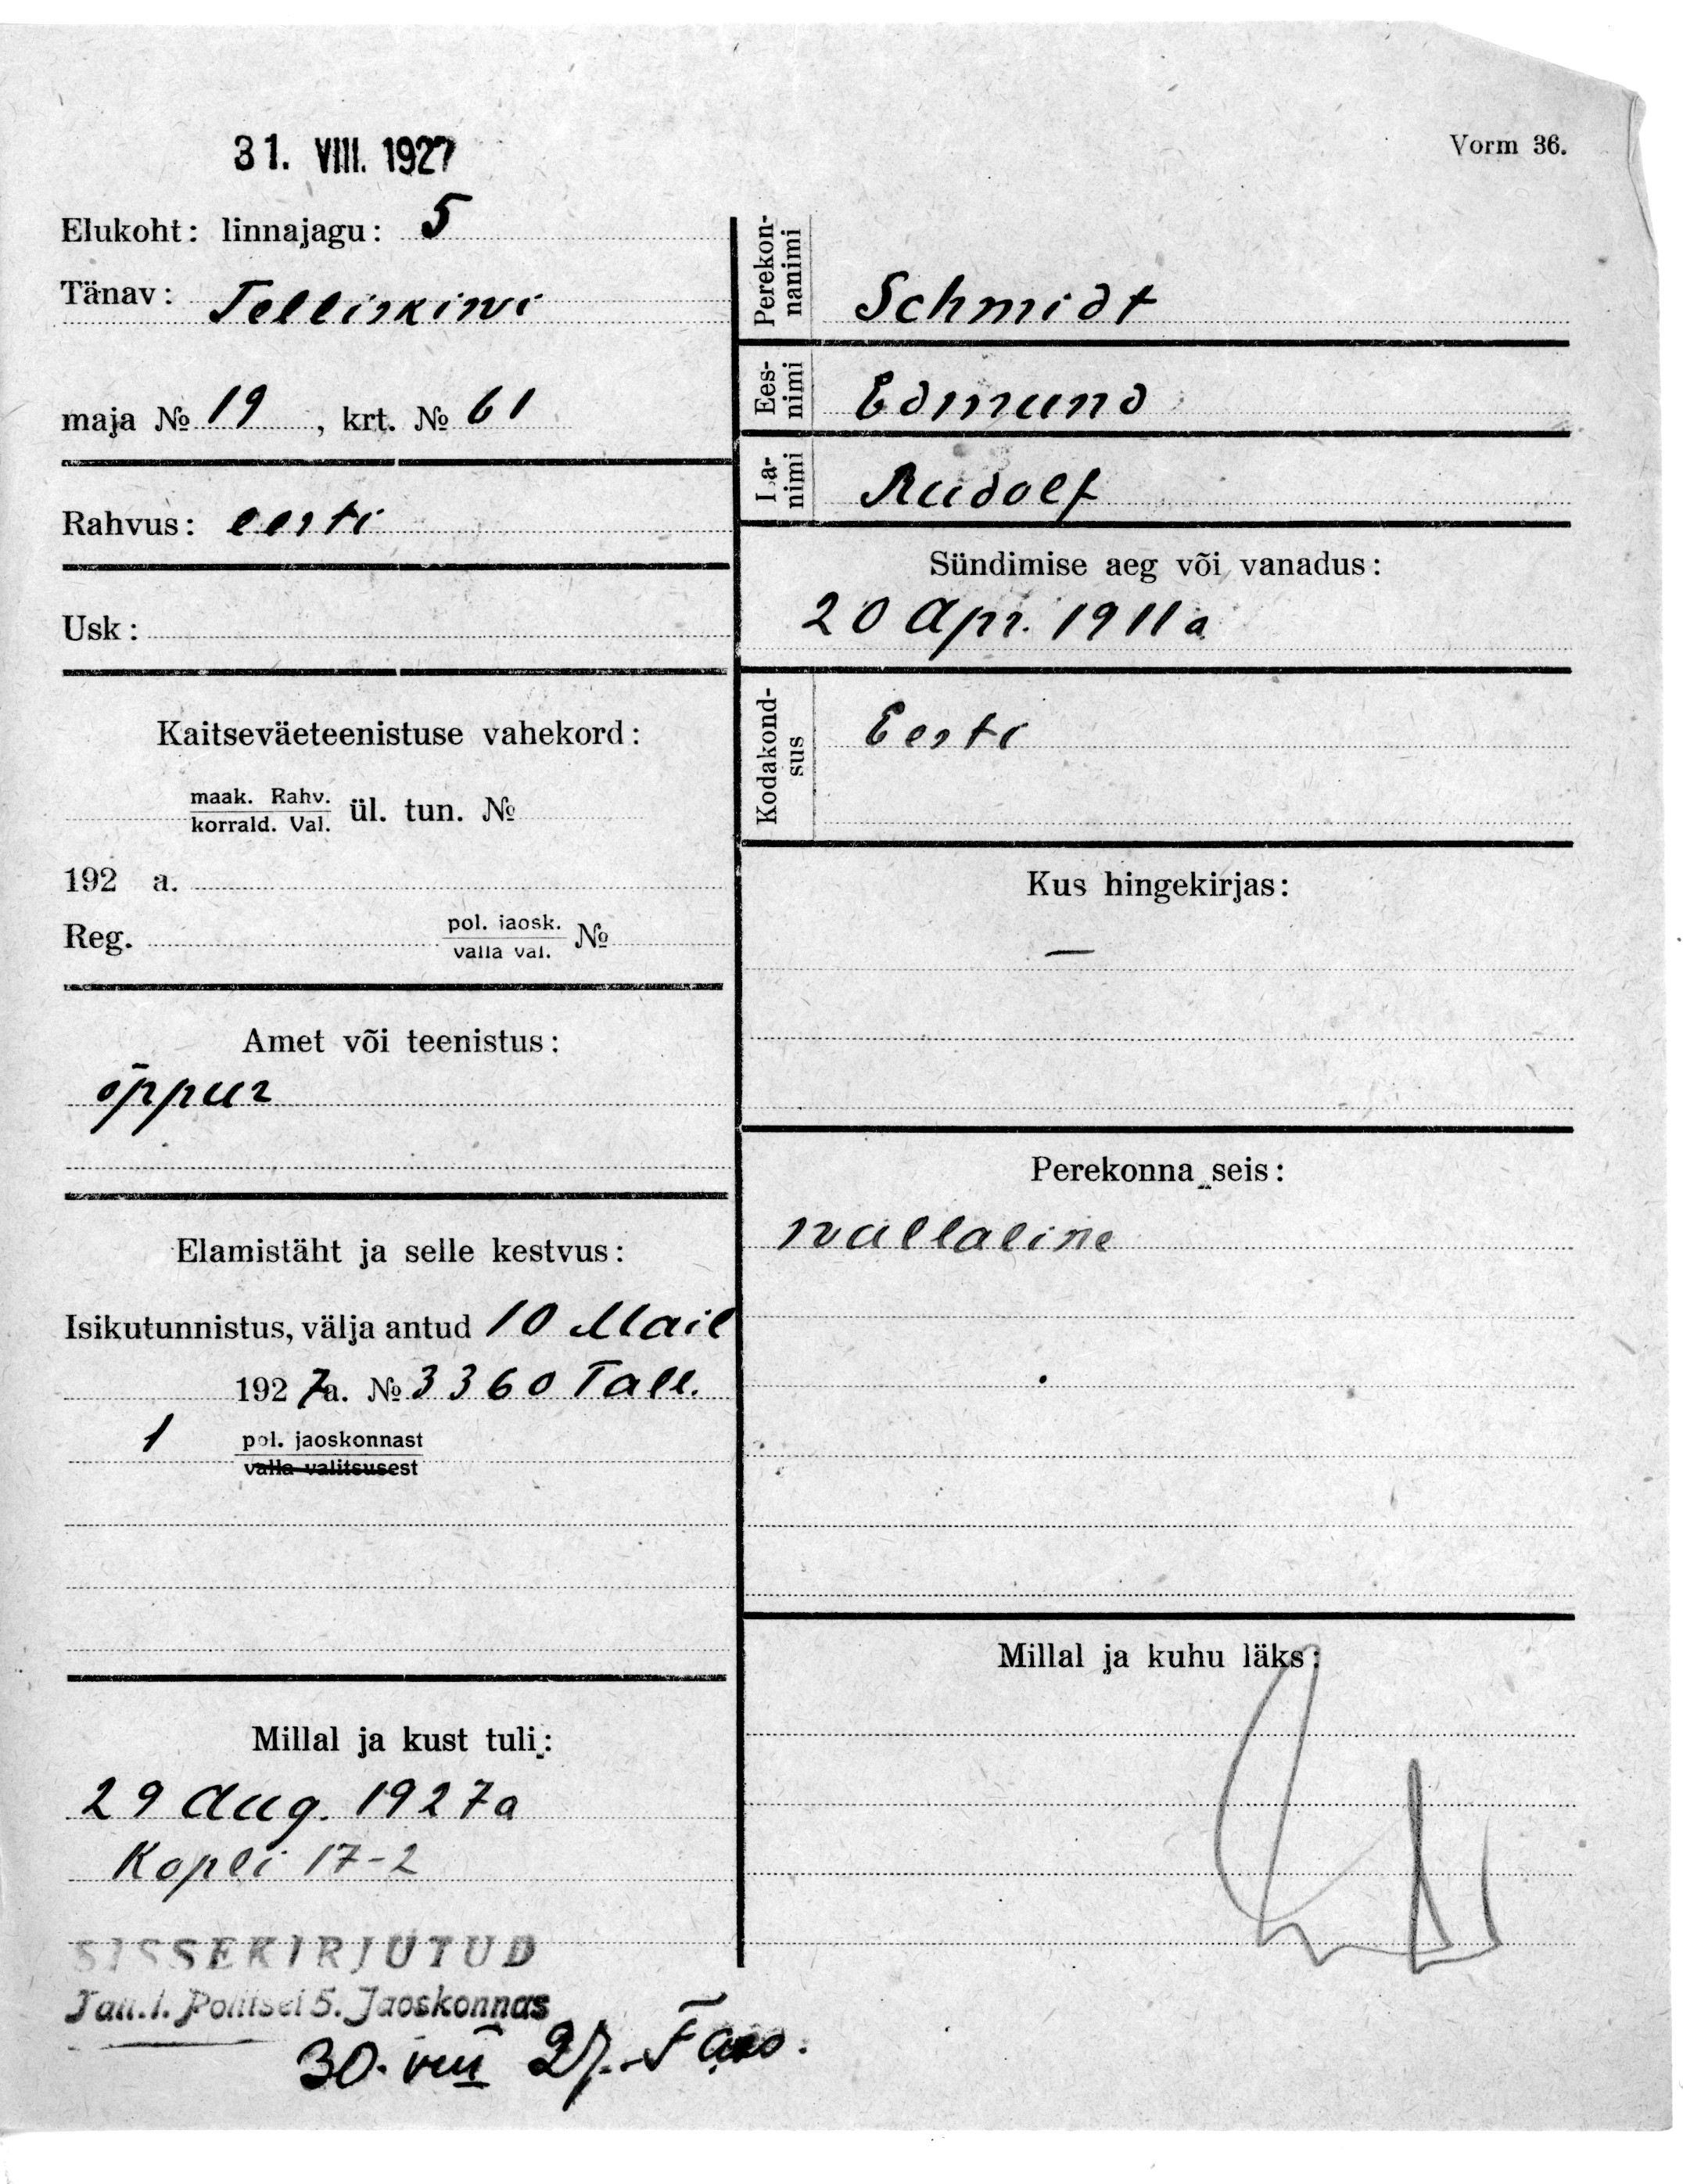 31. VIII. 1927
Vorm 36.
Elukoht: linnajagu: 5
Tänav: Telliskiwi
maja № 19, krt. № 61
Rahvus: eesti
Usk:
Kaitseväeteenistuse vahekord:
maak. Rahv.
korrald. Val. ül. tun. №
192 a.
Reg. pol. jaosk.
valla val. №
Amet või teenistus:
õppur
Elamistäht ja selle kestvus:
Isikutunnistus, välja antud 10 Mail
1927a. № 3360 Tall.
1 pol. jaoskonnast
valla valitsusest
Millal ja kust tuli:
29 Aug. 1927a
Kopli 17-2
SISSEKIRJUTUD
Tall.l. Politsei 5. Jaoskonnas
30. VIII 27.
Perekon-
nanimi
Schmidt
Ees-
nimi
Edmund
Isa-
nimi
Rudolf
Sündimise aeg või vanadus:
20 Apr. 1911a
Kodakond-
sus
Eesti
Kus hingekirjas:
—
Perekonna seis:
wallaline
Millal ja kuhu läks: